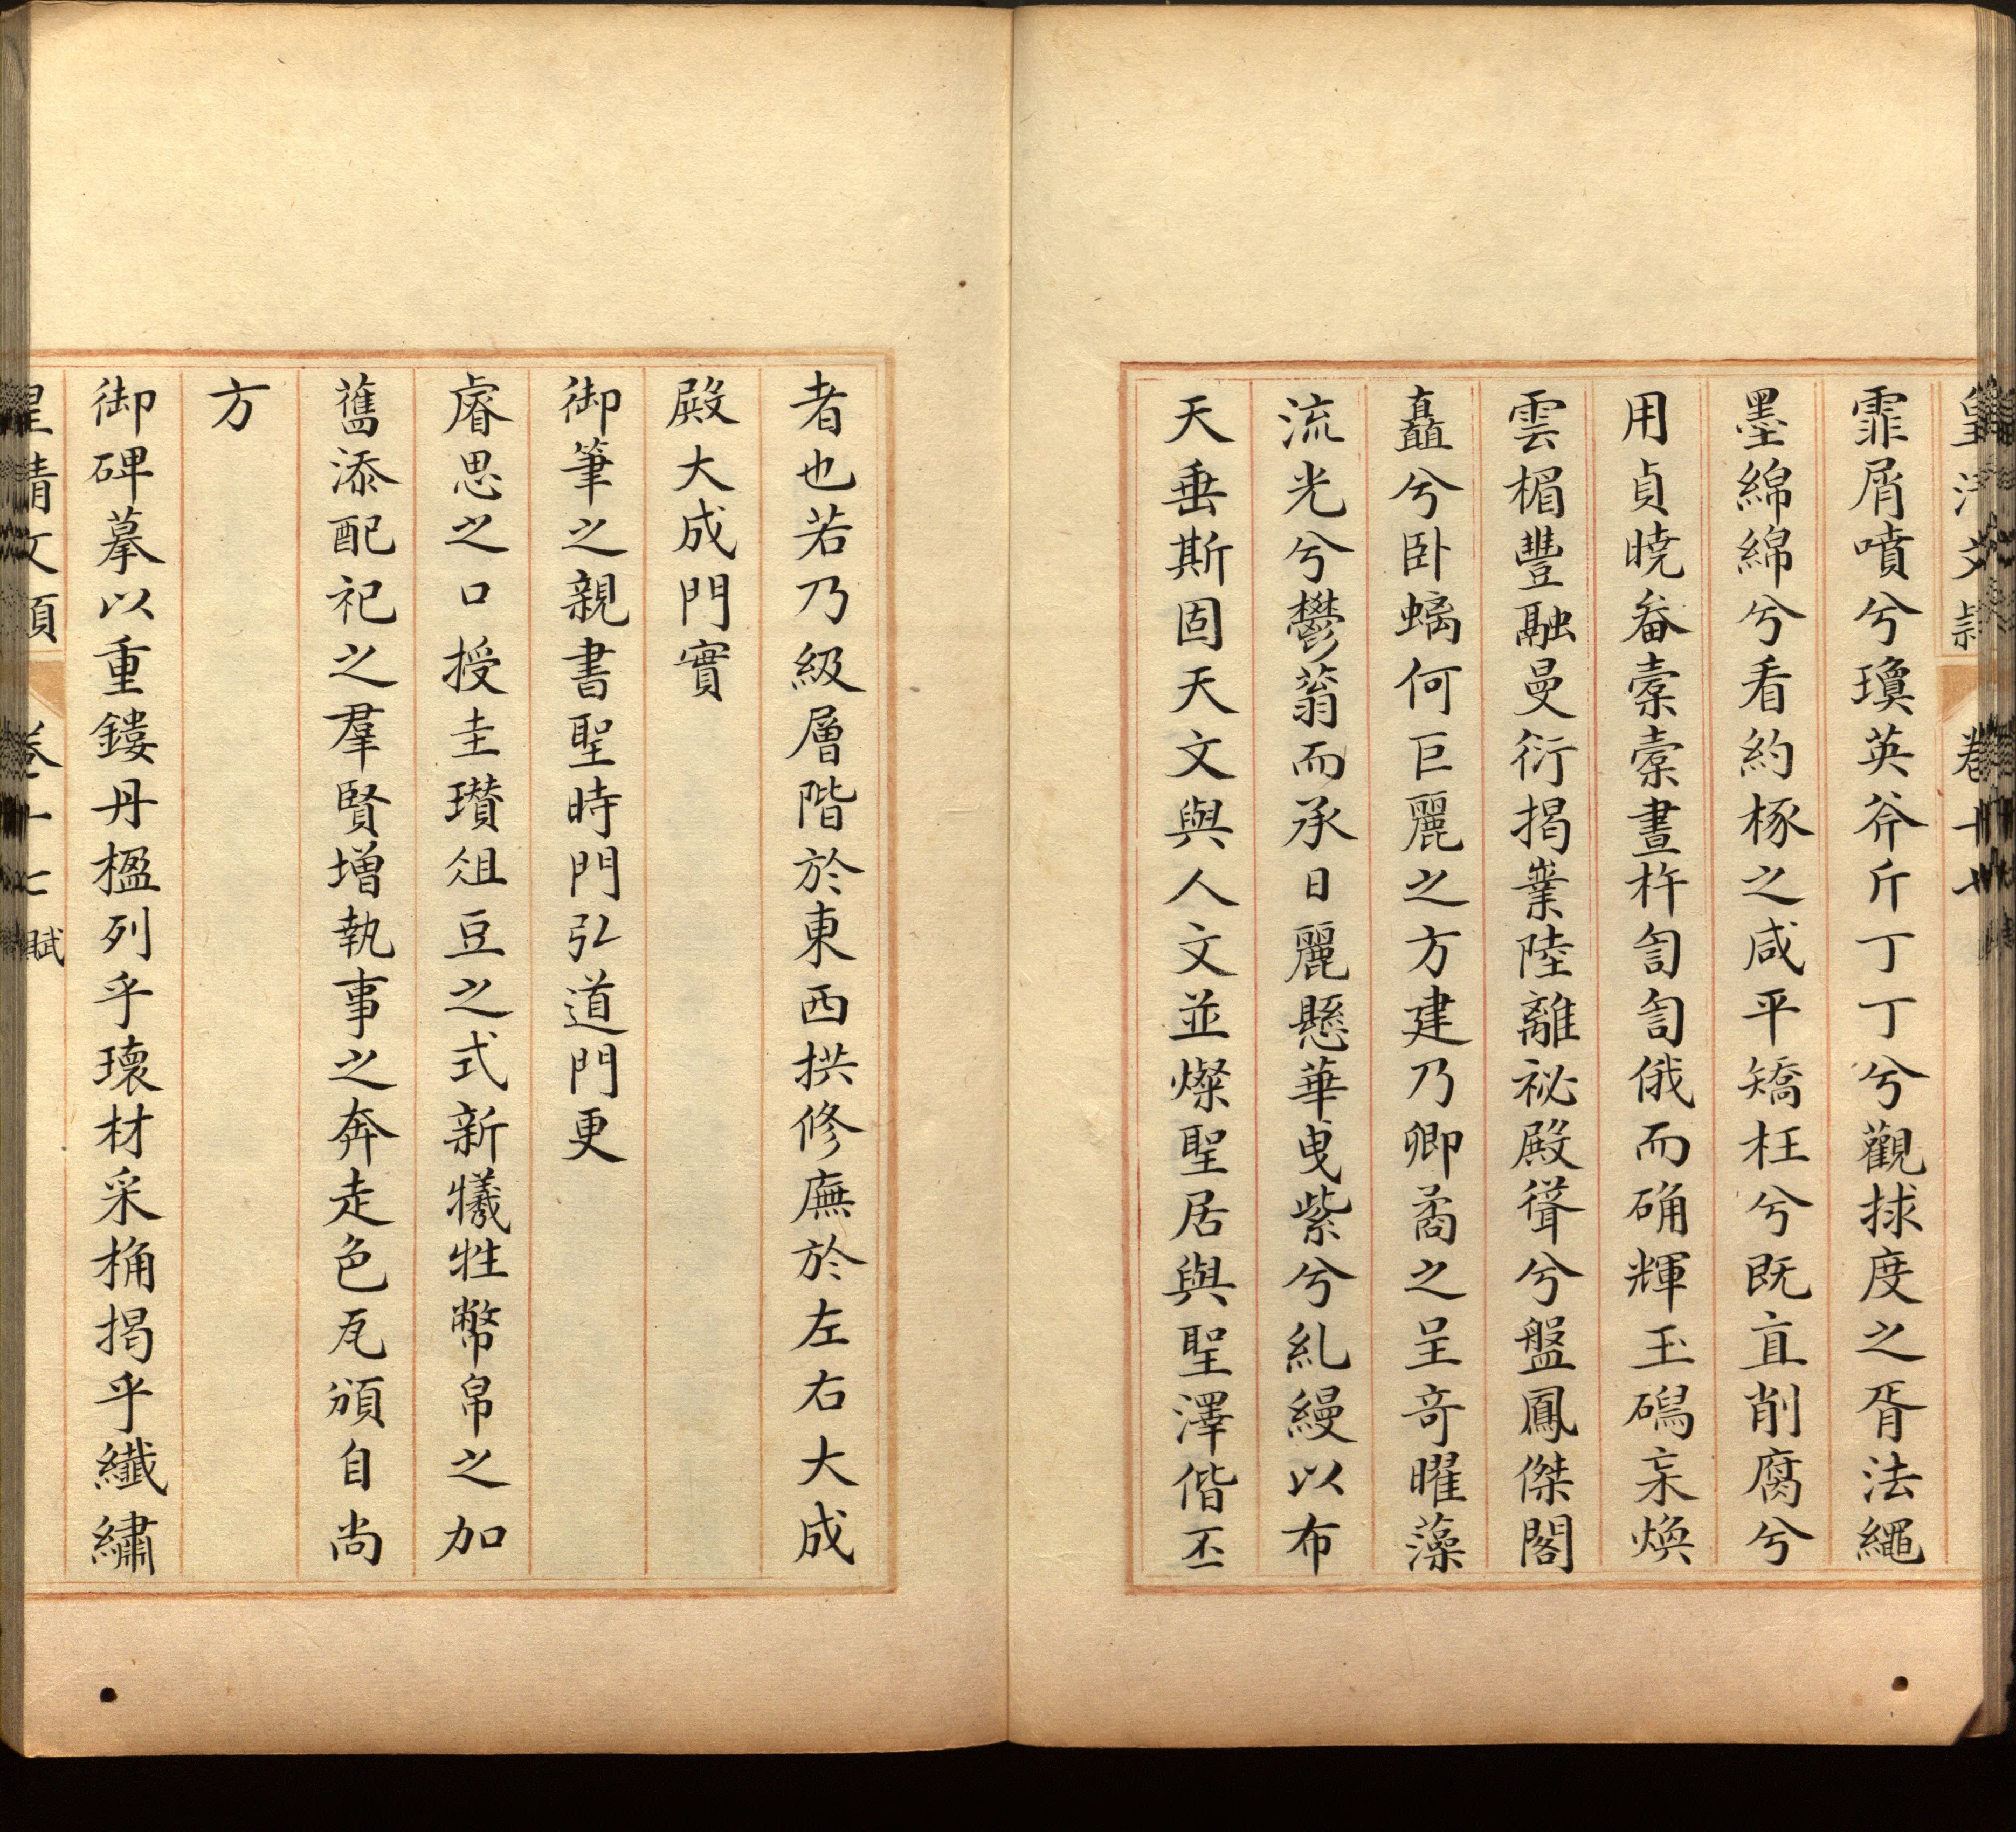 皇清文穎 卷十七
霏屑噴兮瓊英斧斤丁丁兮觀捄度之胥法繩
墨綿綿兮看約椓之咸平矯枉兮既直削腐兮
用貞曉畚橐橐晝杵訇訇俄而确輝玉磶宋煥
雲楣豐融曼衍揭嶪陸離祕殿聳兮盤鳳傑閣
矗兮卧螭何巨麗之方建乃卿矞之呈奇曜藻
流光兮鬱蓊而承日麗懸華曳紫兮糺縵以布
天垂斯固天文與人文並燦聖居與聖澤偕丕
者也若乃級層階於東西拱修廡於左右大成
殿大成門實
御筆之親書聖時門弘道門更
睿思之口授圭瓚俎豆之式新犧牲幣帛之加
舊添配祀之羣賢增執事之奔走色瓦頒自尚
方
御碑摹以重鏤丹楹列乎瓌材采桷揭乎纖繡
皇清文穎 卷十七 賦